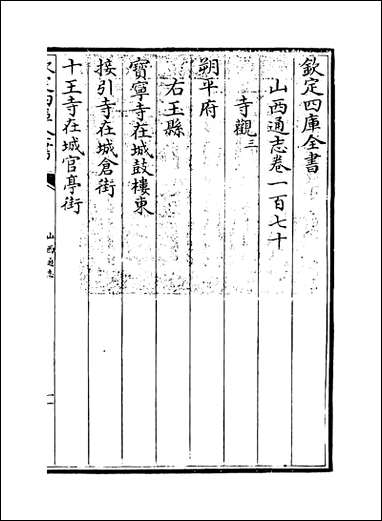 欽定四庫全書
山西通志卷一百七十
寺觀三
朔平府
右玉縣
寶寧寺在城鼓樓東
接引寺在城倉街
十王寺在城官亭街
欽定四庫全書
山西通志
一